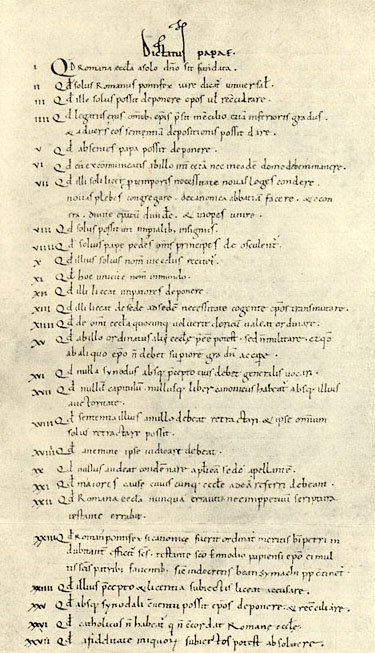 Dictatus papae.
I Qd Romana eccła a solo dño sit fundata.
II Qd solus Romanus pontifex iure dicat᷑ universał.
III Qd ille solus possit deponere epos uł recciliare.
IIII Qd legatus eius omib; epis p̄sit in ccilio etiā inferioris gradus
& adversus eos sententiā depositionis possit dare.
V Qd absentes papa possit deponere.
VI Qd cū excommunicatis ab illo int̄ cetā nec in eadē domo debem manere.
VII Qd illi soli licet p temporis necessitate novas leges condere
novas plebes congregare. de canonica abbatiā facere. & e con
tra. divitē epatū divide. & inopes unire.
VIII Qd solus possit uti imp̄ialib; insigniis.
VIIII Qd solius pape pedes oms principes deosculent᷑.
X Qd illius solius nom̄ in ecclīis recitet᷑.
XI Qd hoc unicū ē nom̄ in mundo.
XII Qd illi liceat imp̄atores deponere.
XIII Qd illi liceat de sede ad sedē necessitate cogente epos transmutare.
XIIII Qd de om̄i eccła quocunq; voluerit clericū valeat ordinare.
XV Qd ab illo ordinatus alii eccłe p̄ee potest. sed n̄ militare. et qd
ab aliquo epo n̄ debet supiorē gradū accipe.
XVI Qd nulla synodus absq; p̄cepto eius debet generalis vocari.
XVII Qd nullū capitulū. nullusq; liber canonicus habeat᷑ absq; illius
auctoritate.
XVIII Qd sententia illius a nullo debeat retractari & ipse omnium
solus retractare possit.
XVIIII Qd a nemine ipse iudicari debeat.
XX Qd nullus audeat condēnare aplicā sedē apellantē.
XXI Qd maiores cause cuiuscunq; eccłe ad eā referri debeant.
XXII Qd Romana eccła nunquā erravit nec imppetuū scriptura
testante errabit.
XXIII Qd Romanus pontifex si canonice fuerit ordinat᷑ meritis bti petri in
dubitant̄ efficit᷑ scs. testante sco Ennodio papiensi epo ei mul
tis scis patrib; faventib; sic in decretis beati symachi pp ctinet᷑.
XXIIII Qd illius p̄cepto & licentia subiectis liceat accusare.
XXV Qd absq; synodali cventu possit epos deponere & recciliare.
XXVI Qd catholicus n̄ habeat᷑ q̄ n̄ ccordat Romane eccłe.
XXVII Qd a fidelitate iniquor̄ subiectos potest absolvere.